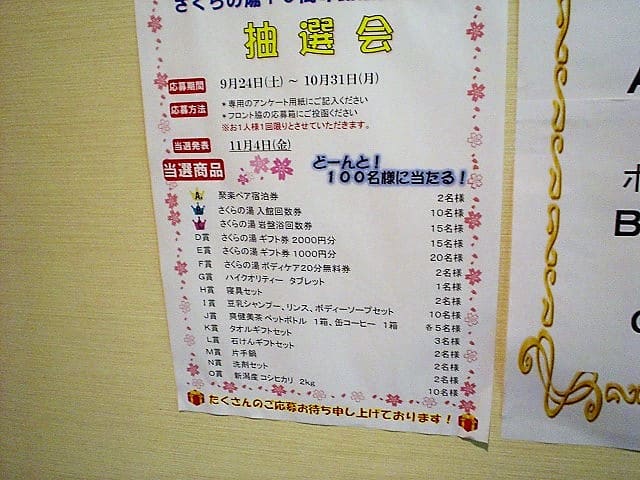 さくらの湯10周年
抽選会
応募期間 9月24日(土) ～ 10月31日(月)
応募方法 *専用のアンケート用紙にご記入ください
*フロント脇の応募箱にご投函ください
※お1人様1回限りとさせていただきます。
当選発表 11月4日(金)
当選商品 どーんと!
100名様に当たる!
A 聚楽ペア宿泊券 2名様
さくらの湯 入館回数券 10名様
さくらの湯 岩盤浴回数券 15名様
D賞 さくらの湯 ギフト券 2000円分 15名様
E賞 さくらの湯 ギフト券 1000円分 20名様
F賞 さくらの湯 ボディケア20分無料券 2名様
G賞 ハイクオリティー タブレット 1名様
H賞 寝具セット 2名様
I賞 豆乳シャンプー、リンス、ボディーソープセット 10名様
J賞 爽健美茶 ペットボトル 1箱、缶コーヒー 1箱 各5名様
K賞 タオルギフトセット 3名様
L賞 石けんギフトセット 2名様
M賞 片手鍋 2名様
N賞 洗剤セット 2名様
O賞 新潟産コシヒカリ 2kg 10名様
たくさんのご応募お待ち申し上げております!